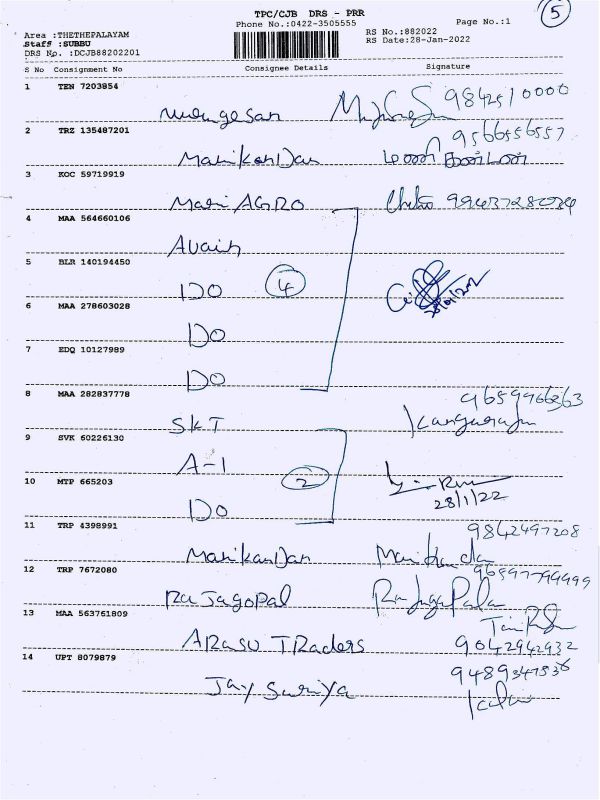 TPC/CJB DRS - PRR
Phone No.:0422-3505555
Page No.:1
5
Area :THETHEPALAYAM
Staff :SUBBU
DRS No. :DCJB88202201
RS No.:882022
RS Date:28-Jan-2022
S No Consignment No Consignee Details Signature
1 TEN 7203854
9842510000
2 TRZ 135487201
9566556557
Manikandan மணிகண்டன்
3 KOC 59719919
Mari AGRO
4 MAA 564660106
5 BLR 140194450
DO 4
6 MAA 278603028
DO
7 EDQ 10127989
DO
8 MAA 282837778
SKT
9 SVK 60226130
A-1
10 MTP 665203
2
DO 28/1/22
11 TRP 4398991
9842497208
Manikandan
12 TRP 7672080
Rajagopal
13 MAA 563761809
ARASU TRaders 9042942932
14 UPT 8079879
Jay Suriya